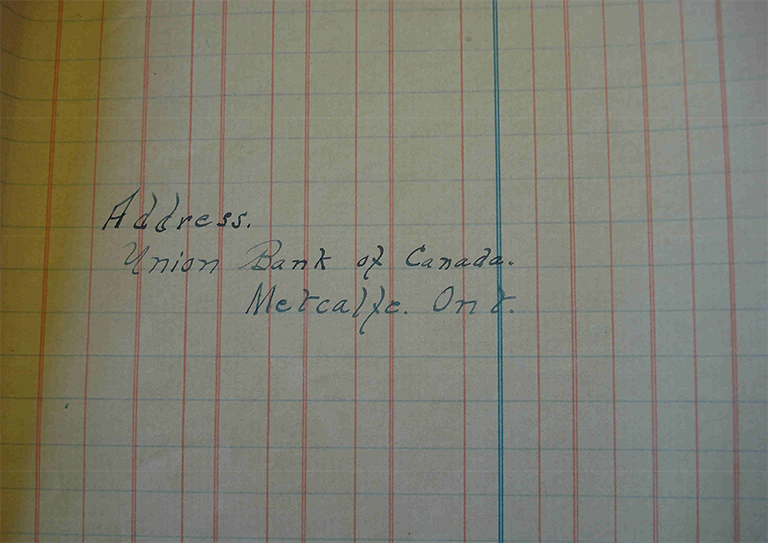 Address.
Union Bank of Canada.
Metcalfe. Ont.